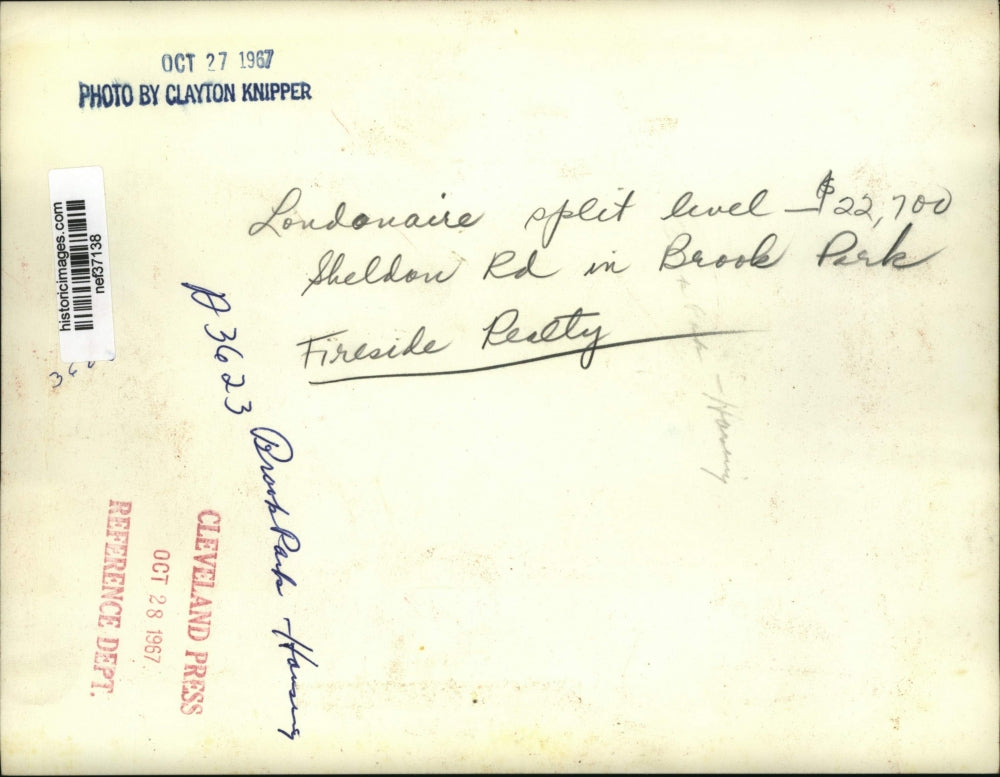 OCT 27 1967
PHOTO BY CLAYTON KNIPPER
historicimages.com
nef37138
Londonaire split level – $22,700
Sheldon Rd in Brook Park
Fireside Realty
D 3623 Brook Park - Housing
- Housing
CLEVELAND PRESS
OCT 28 1967
REFERENCE DEPT.